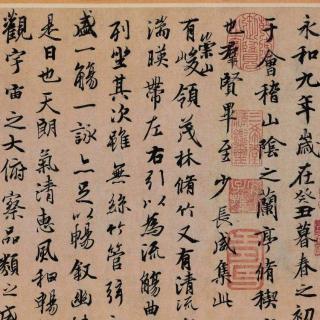 永和九年歲在癸丑暮春之初
于會稽山陰之蘭亭脩稧
也羣賢畢至少長咸集此
有崇山峻領茂林脩竹又有清流
湍暎帶左右引以為流觴曲
列坐其次雖無絲竹管弦
盛一觴一詠亦足以暢敘幽
是日也天朗氣清惠風和暢
觀宇宙之大俯察品類之盛